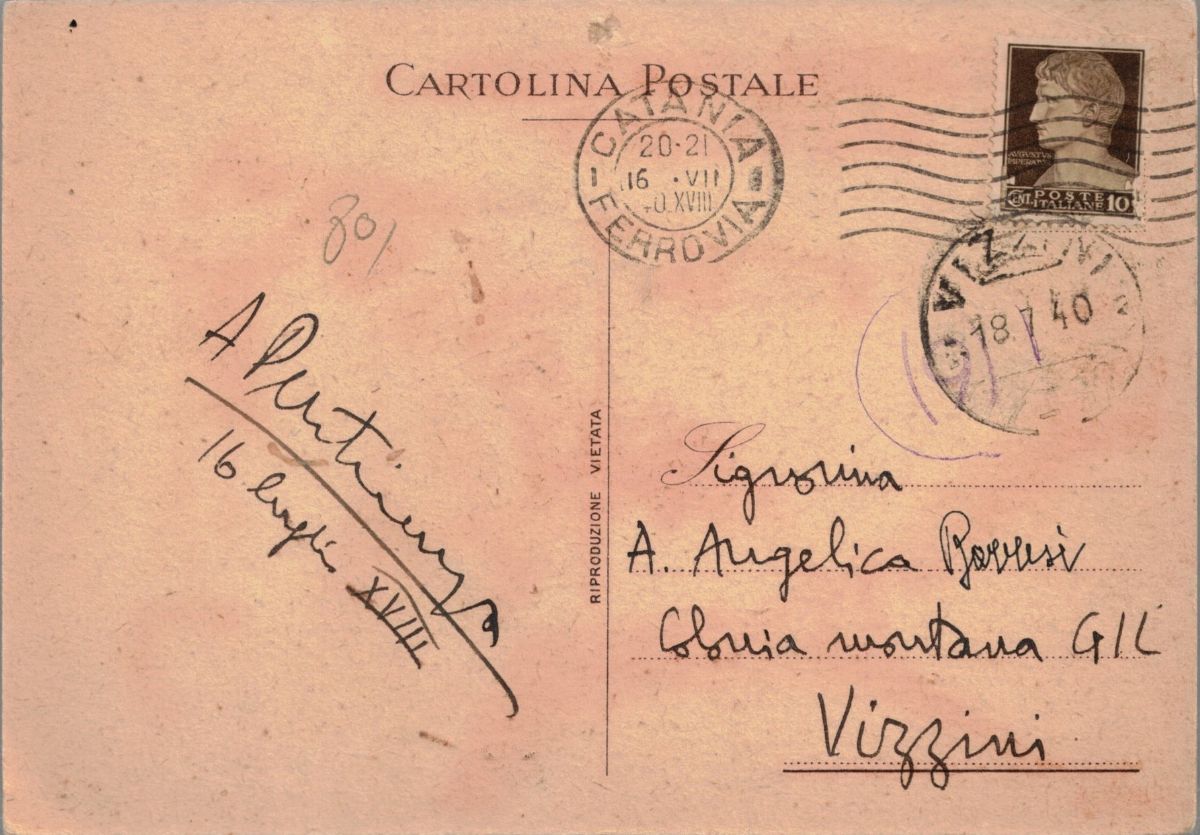 CARTOLINA POSTALE
CATANIA
20-21
16 · VII
40 XVIII
FERROVIA
AVGVSTVS
IMPERATOR
CENT. POSTE ITALIANE 10
VIZZINI
18.7.40
80/
A
16 luglio XVIII
RIPRODUZIONE VIETATA
Signorina
A. Angelica Barresi
Colonia montana GIL
Vizzini